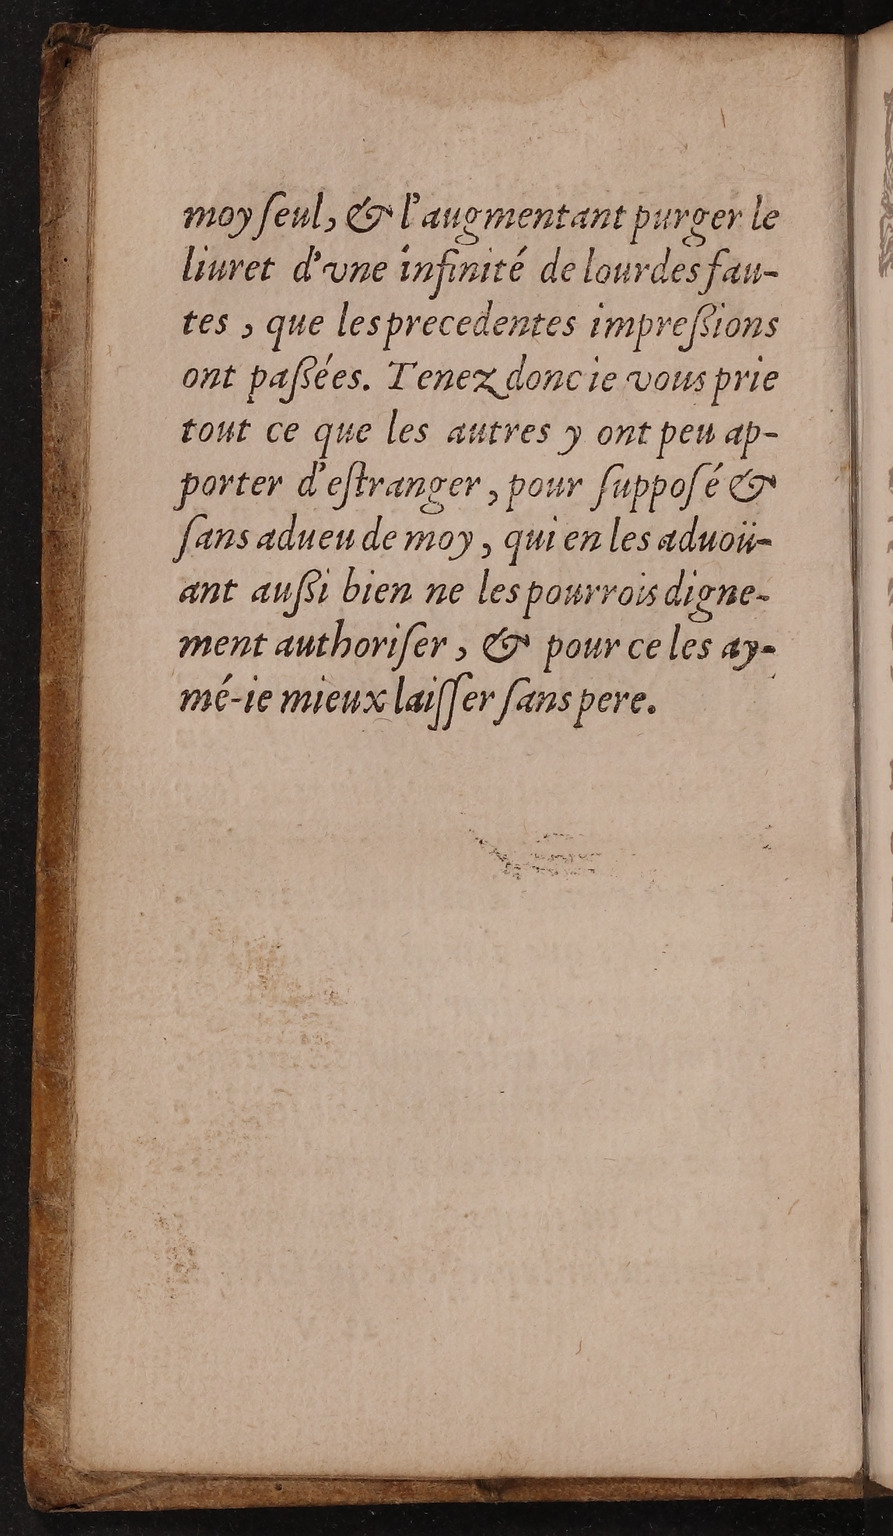 moy ſeul, & l'augmentant purger le
liuret d'vne infinité de lourdes fau-
tes, que les precedentes impreſsions
ont paſsées. Tenez donc ie vous prie
tout ce que les autres y ont peu ap-
porter d'eſtranger, pour ſuppoſé &
ſans adueu de moy, qui en les aduoü-
ant auſsi bien ne les pourrois digne-
ment authoriſer, & pour ce les ay-
mé-ie mieux laiſſer ſans pere.